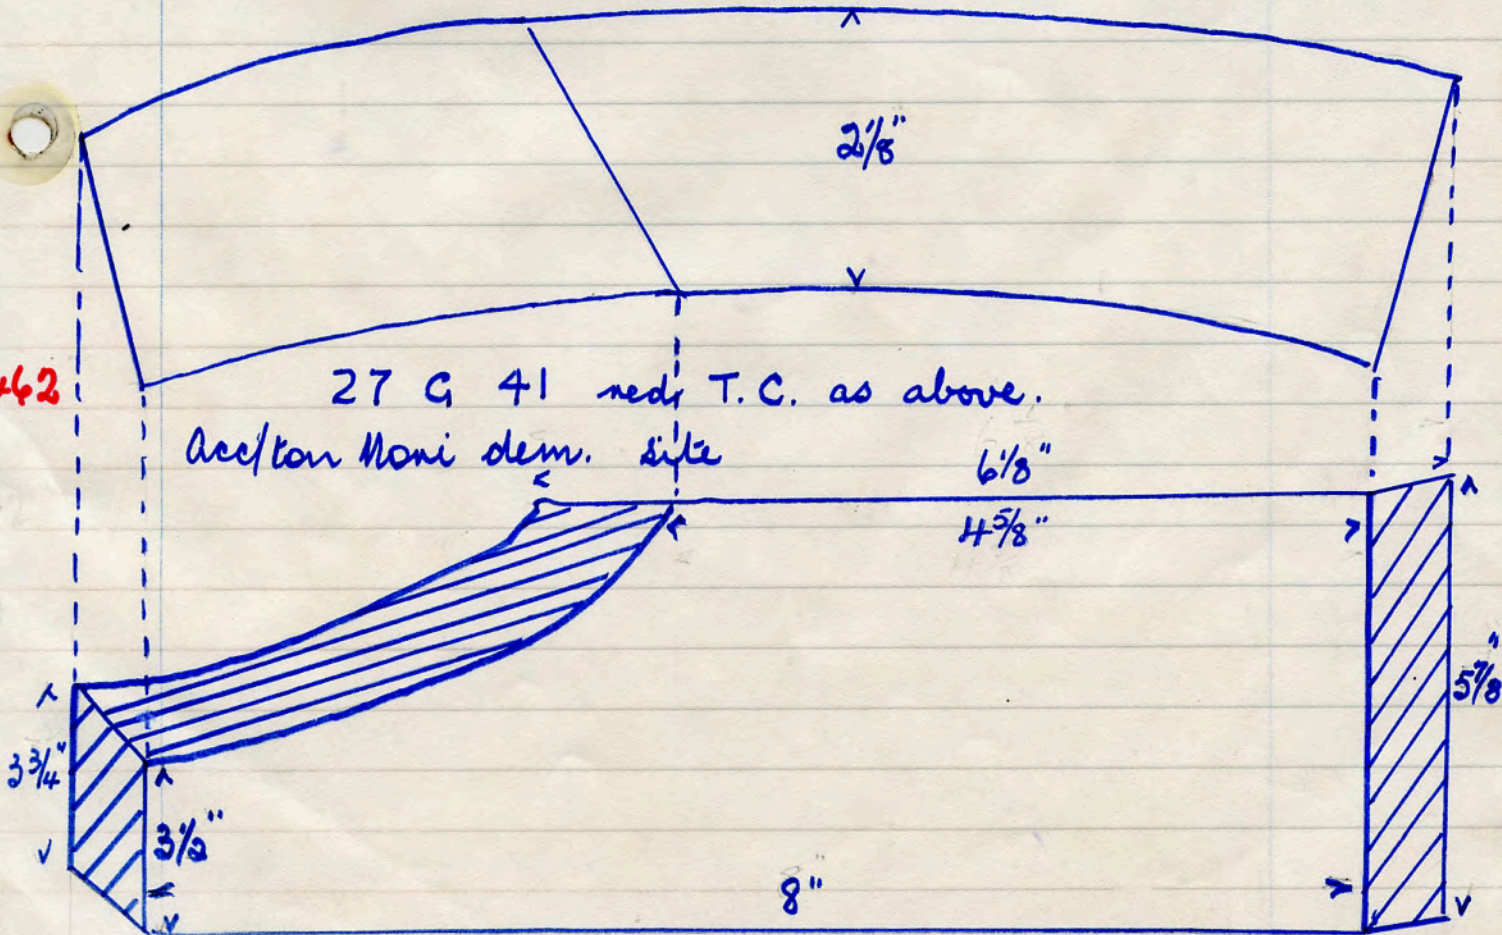 2⅛"
462
27 G 41 red, T.C. as above.
dem. site
6⅛"
4⅝"
5⅞"
3¾"
3½"
8"